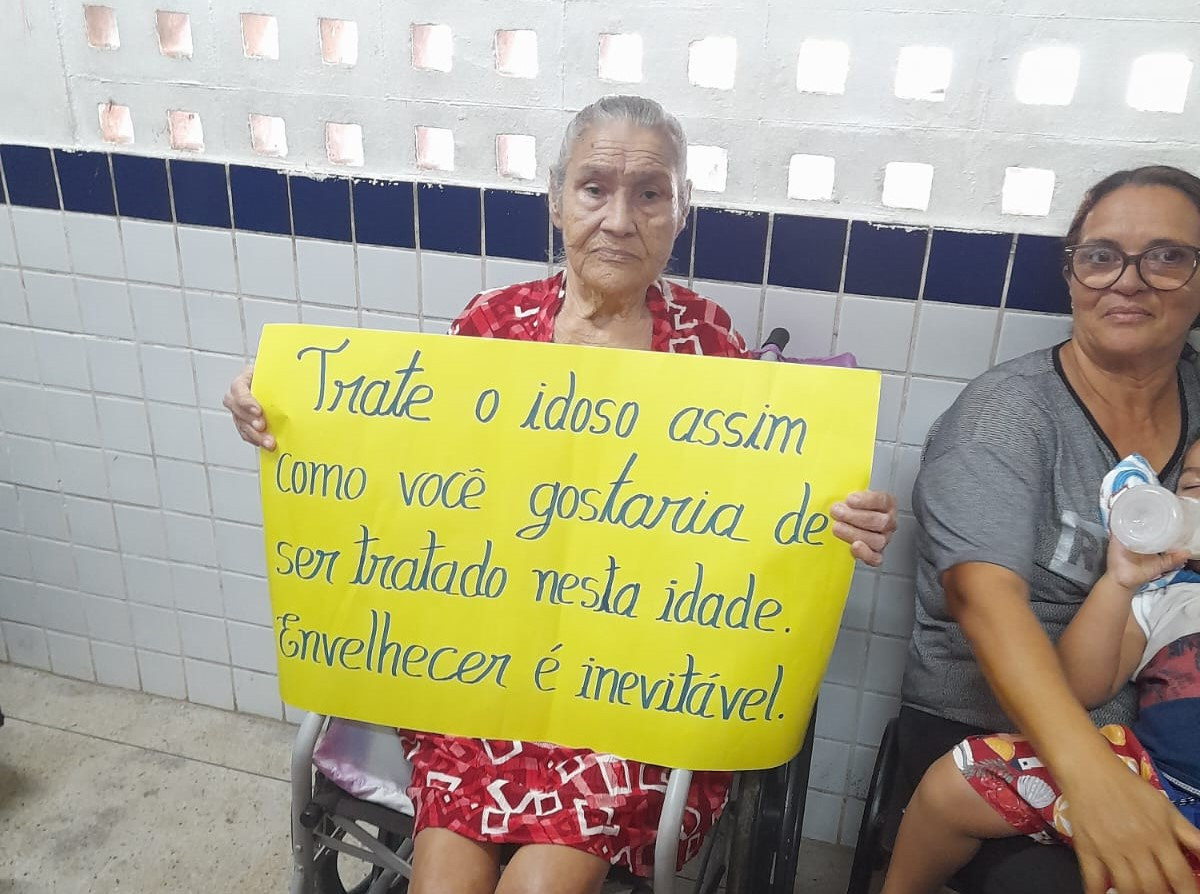 Trate o idoso assim
como você gostaria de
ser tratado nesta idade.
Envelhecer é inevitável.